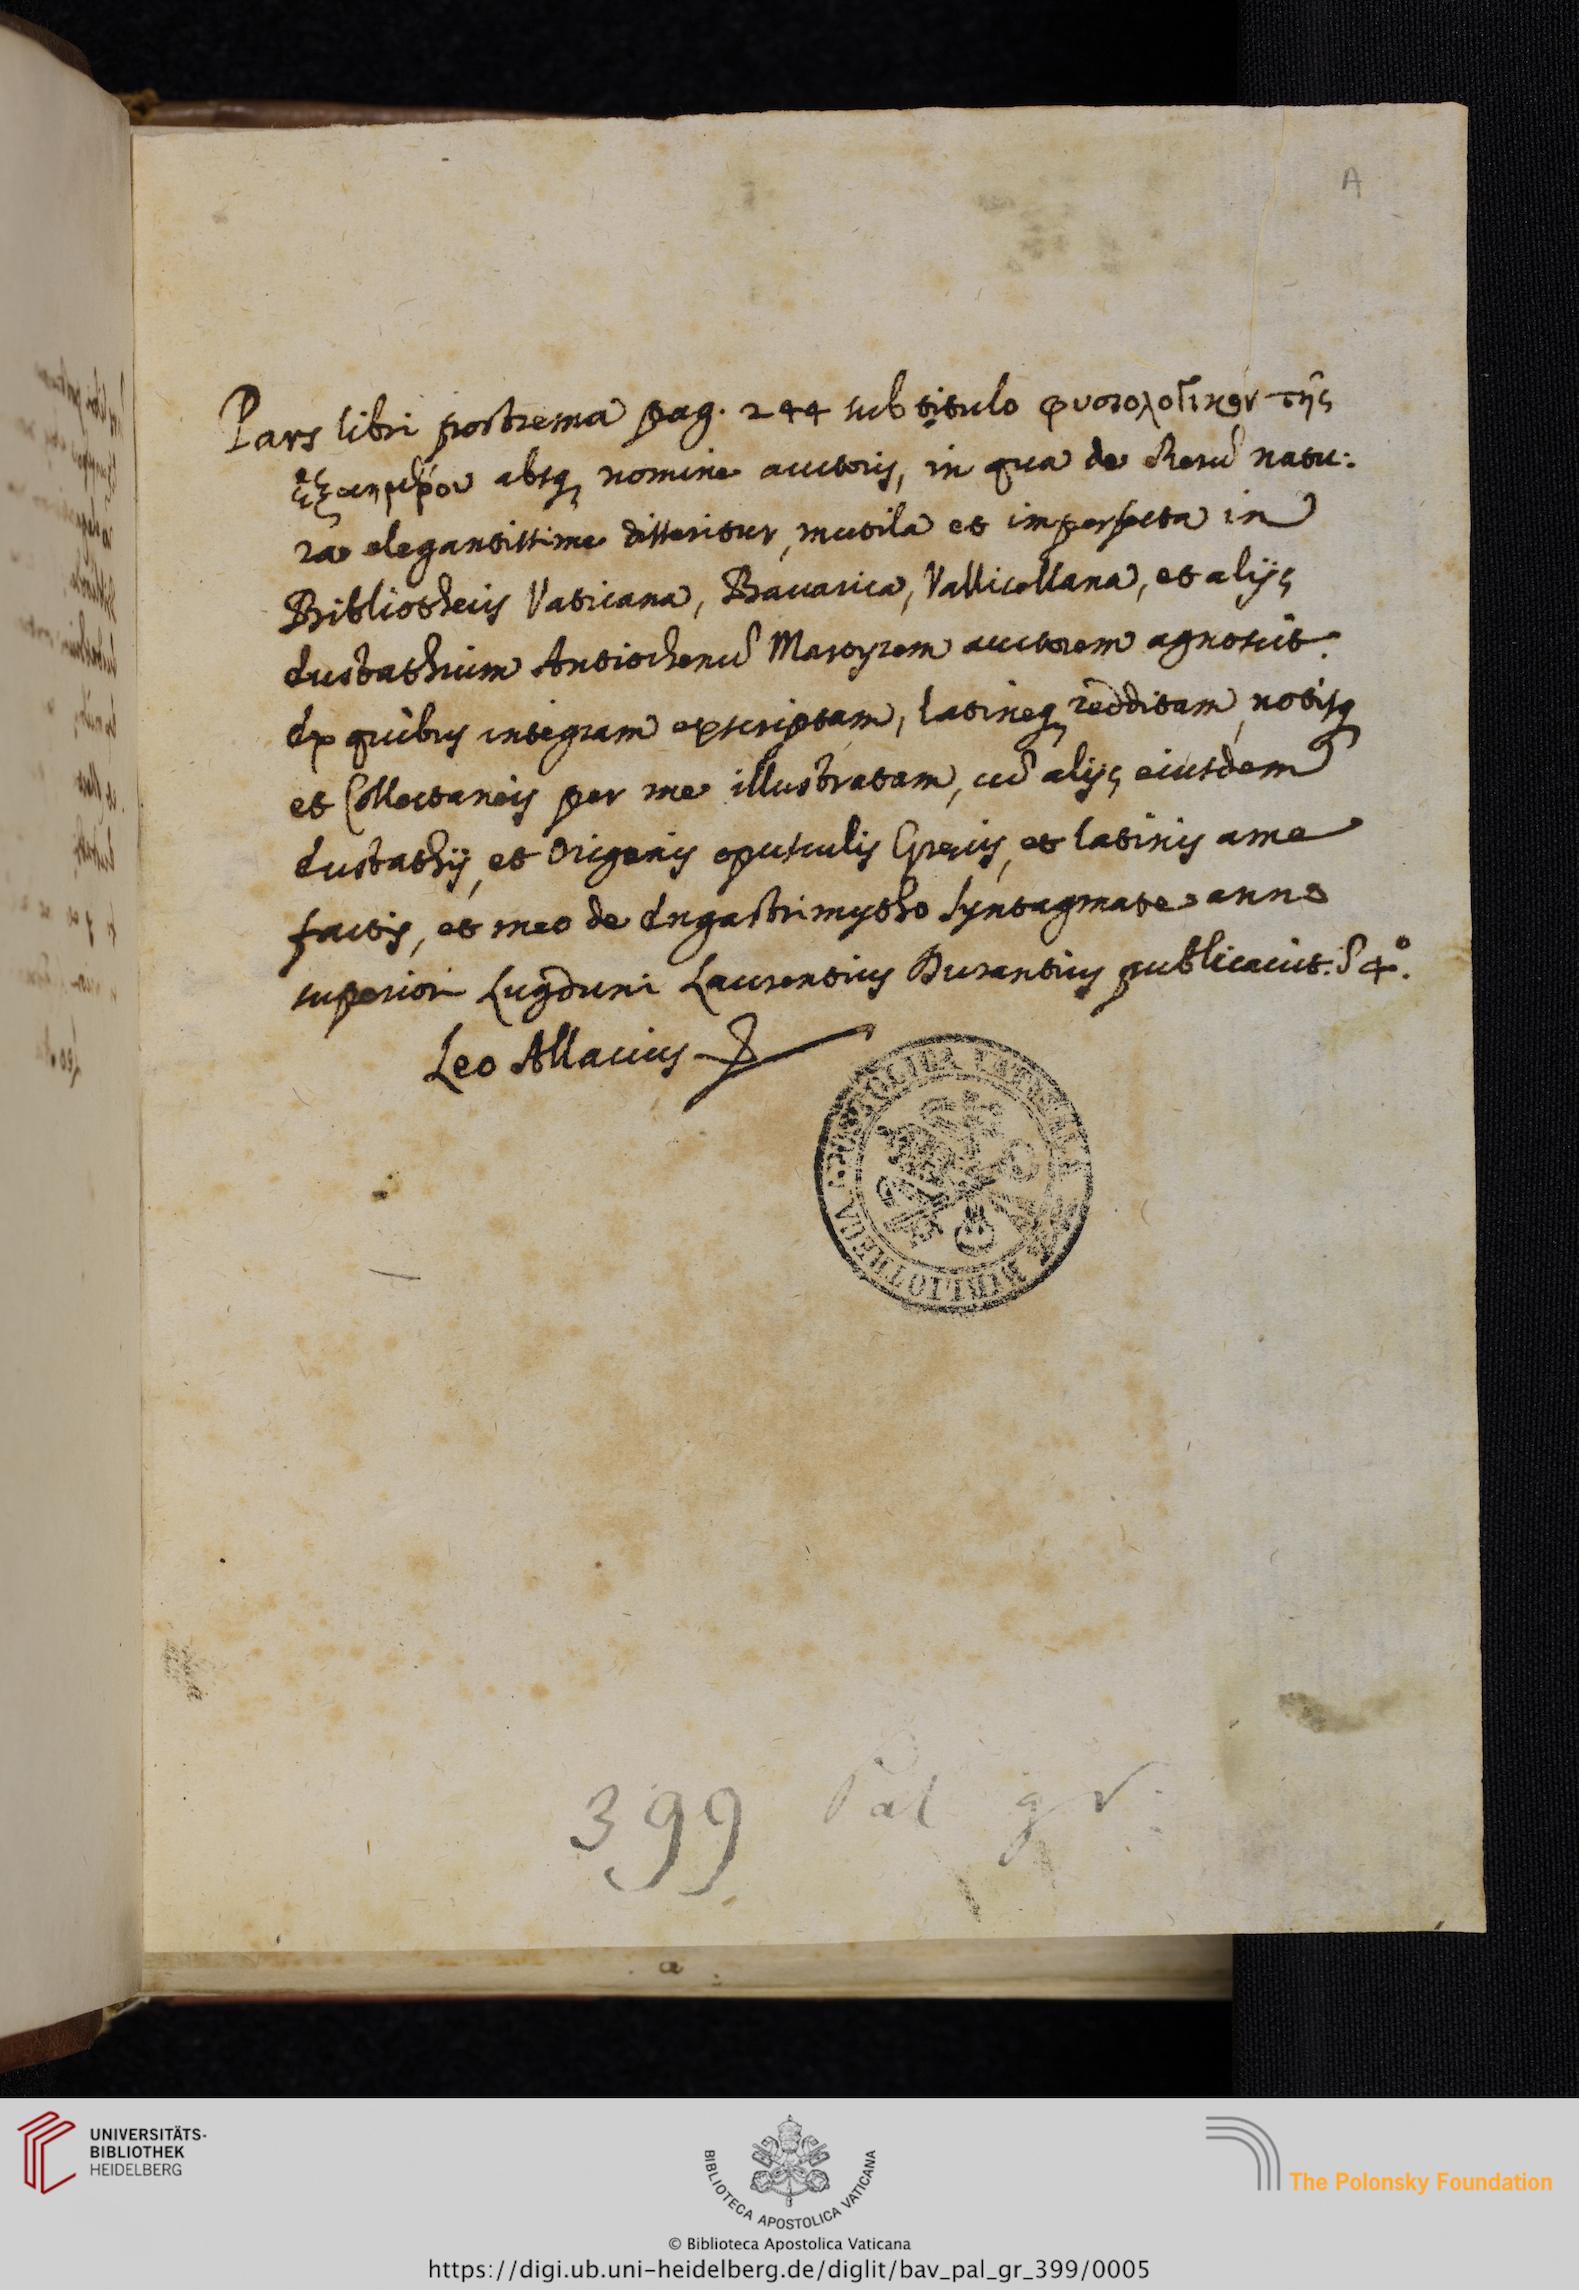 A
Pars libri postrema pag. 244 sub titulo φυσιολογικὸν τῆς
absq nomine auctoris, in qua de Rerū natu:
ra elegantissime disseritur, mutila et imperfecta in
Bibliothecis Vaticana, Bavarica, Vallicellana, et alijs
Eustathium Antiochenū Martyrem auctorem agnoscit.
Ex quibus integram exscriptam, latineq redditam, notisq
et Collectaneis per me illustratam, cū alijs eiusdem
Eustathij, et Origenis opusculis Grecis, et latinis a me
factis, et meo de Engastrimytho Syntagmate anno
superiori Lugduni Laurentius Durantius publicavit. 4°.
Leo Allacius
BIBLIOTHECA APOSTOLICA VATICANA
399 Pal gr.
a
UNIVERSITÄTS-
BIBLIOTHEK
HEIDELBERG
BIBLIOTECA APOSTOLICA VATICANA
The Polonsky Foundation
© Biblioteca Apostolica Vaticana
https://digi.ub.uni-heidelberg.de/diglit/bav_pal_gr_399/0005